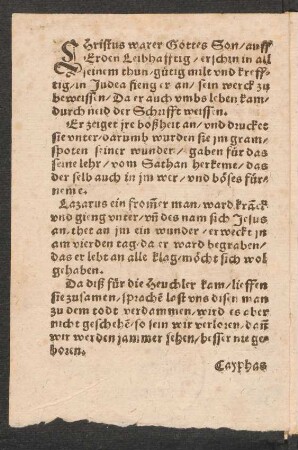 CHristus warer Gottes Son/auff
Erden Leibhafftig/erschin in all
seinem thun/gütig milt vnd kreff-
tig/in Judea fieng er an/sein werck zu
beweissen/Da er auch vmbs leben kam/
durch neid der Schrifft weissen.
Er zeiget jre boßheit an/vnd drucket
sie vnter/darumb wurden sie jm gram/
spoten seiner wunder/gaben für das
seine lehr/vom Sathan herkeme/das
der selb auch in jm wer/vnd böses für-
neme.
Lazarus ein from̃er man/ward krãck
vnd gieng vnter/vñ des nam sich Jesus
an/thet an jm ein wunder/erweckt jn
am vierden tag/da er ward begraben/
das er lebt an alle klag/möcht sich wol
gehaben.
Da diß für die Heuchler kam/lieffen
sie zusamen/sprachẽ last vns disen man
zu dem todt verdammen/wird es aber
nicht geschehẽ/so sein wir verlorn/dañ
wir werden jammer sehen/besser nie ge-
born.
Cayphas